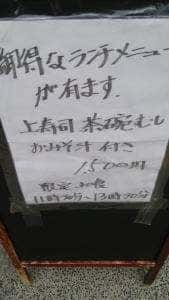 御得なランチメニュー
が有ます.
上寿司 茶碗むし
おみそ汁 付き
1,500円
限定 20食
11時30分~13時30分